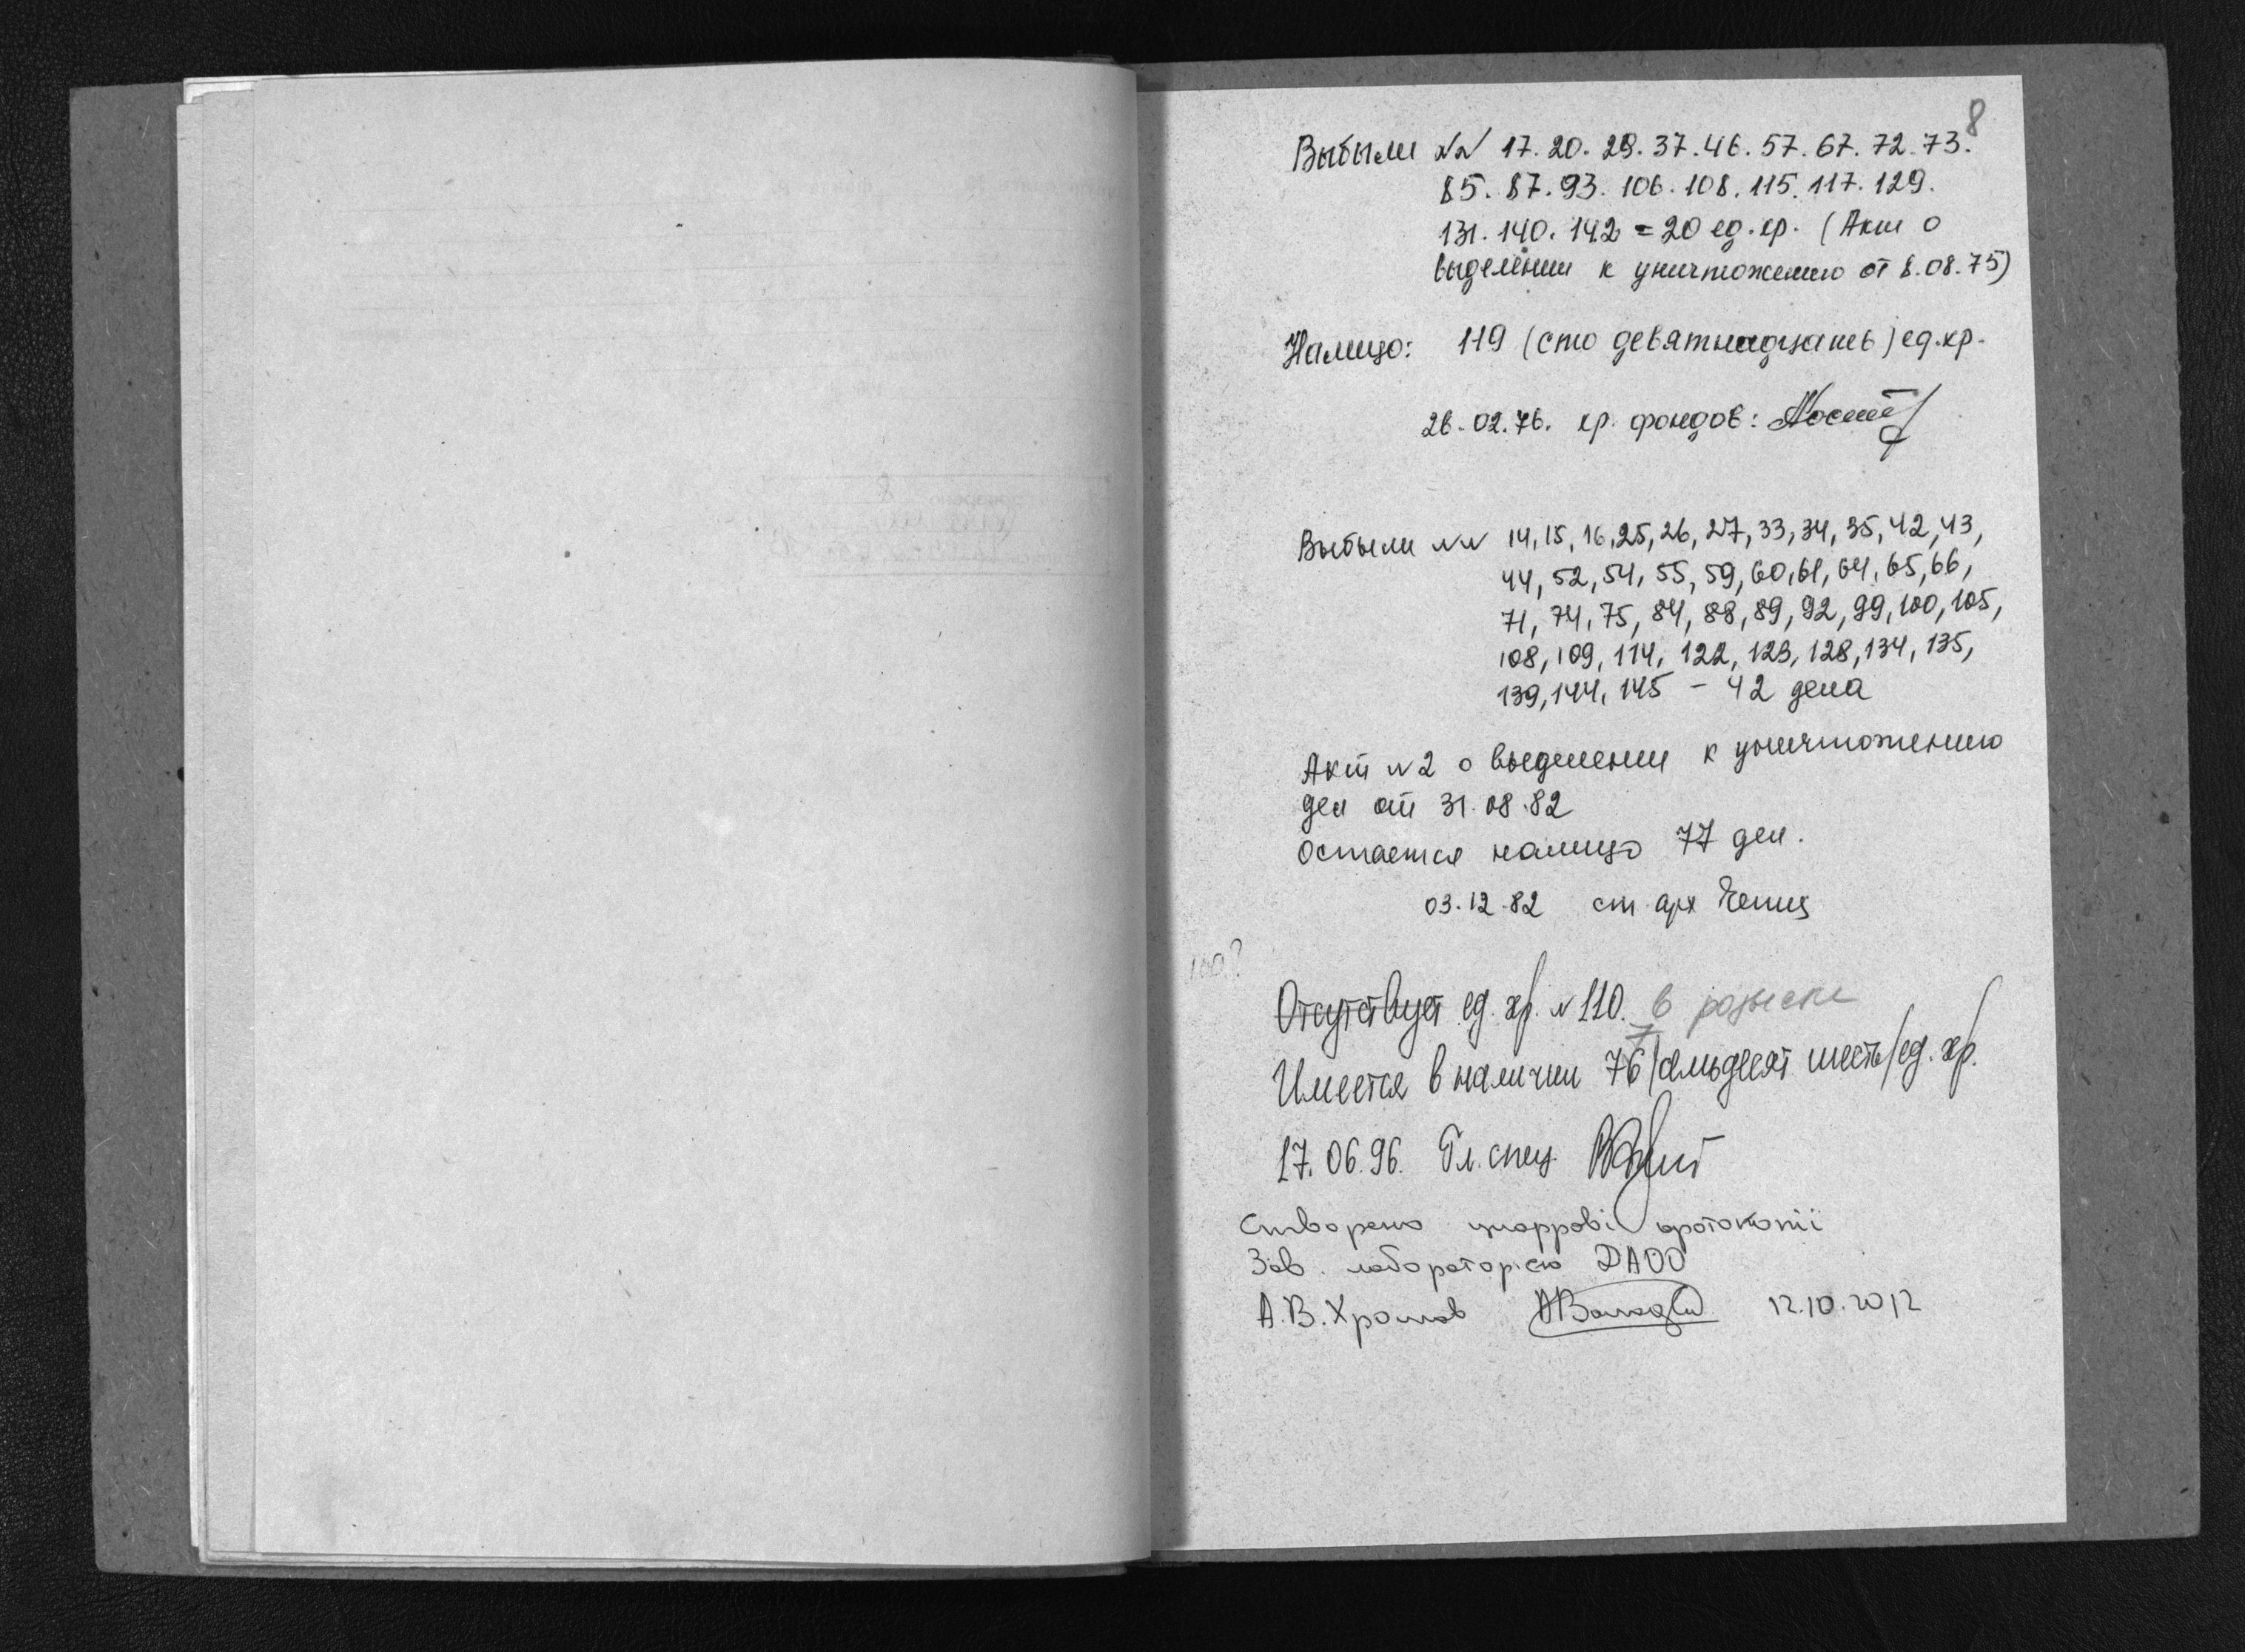 8
Выбыли NN 17. 20. 29. 37. 46. 57. 67. 72. 73.
85. 87. 93. 106. 108. 115. 117. 129.
131. 140. 142 = 20 ед. хр. (Акт о
выделении к уничтожению от 8.08.75)
Налицо: 119 (сто девятнадцать) ед. хр.
26.02.76. хр. фондов:
Выбыли NN 14, 15, 16, 25, 26, 27, 33, 34, 35, 42, 43,
44, 52, 54, 55, 59, 60, 61, 64, 65, 66,
71, 74, 75, 84, 88, 89, 92, 99, 100, 105,
108, 109, 114, 122, 123, 128, 134, 135,
139, 144, 145 – 42 дела
Акт N 2 о выделении к уничтожению
дел от 31.08.82
Остается налицо 77 дел.
03.12.82 ст. арх
Отсутствует ед. хр. N 110. в розыске
Имеется в наличии 76 /семьдесят шесть/ ед. хр.
17.06.96. Гл. спец
Створено цифрові фотокопії
Зав. лабораторією ДАОО
А.В. Хромов 12.10.2012